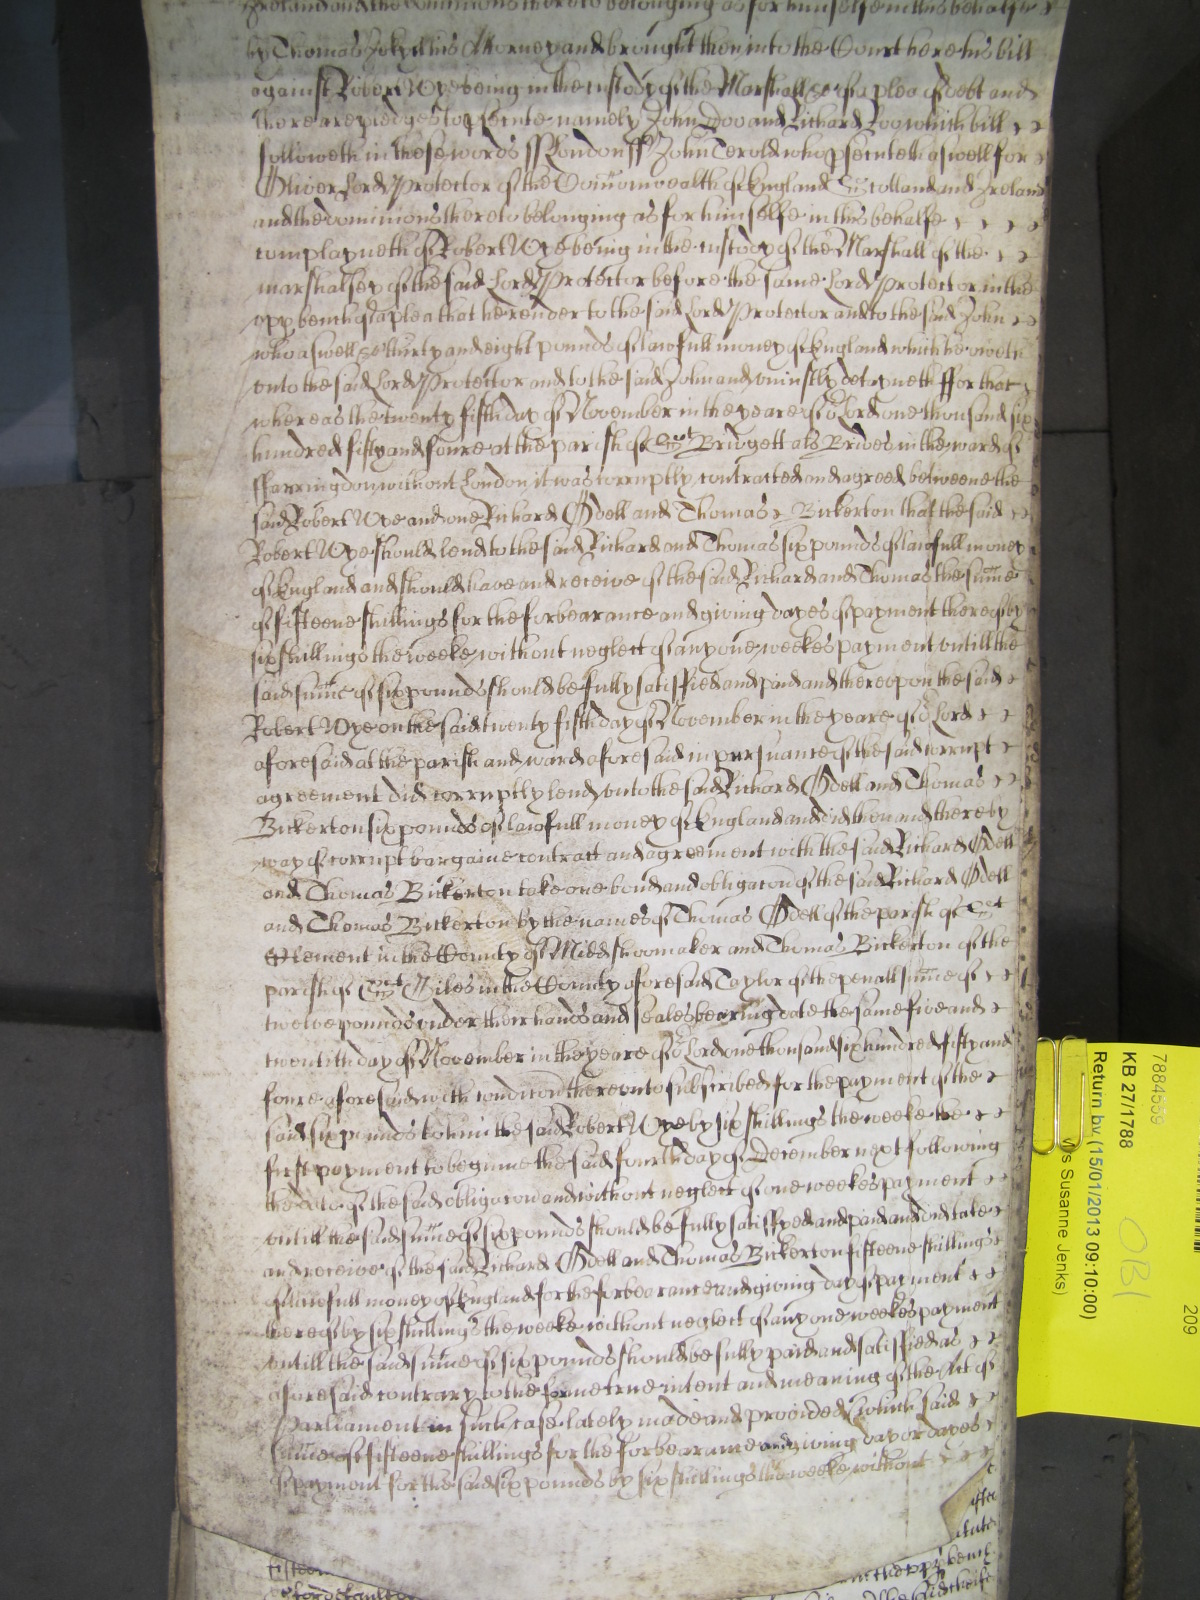 Ireland and the dominions thereto belonging as for himselfe in this behalfe
by Thomas Jekyll his Attorney and brought then into the Court here his bill
against Robert Wye being in the custody of the Marshall &c of a plea of debt and
there are pledges to p'secute namely John Doo and Richard Roo which bill
followeth in these words ss London ss John Terold who p'secuteth aswell for
Oliver Lord Protector of the Com'onwealth of England Scotland and Ireland
and the dominions thereto belonging as for himselfe in this behalfe
complayneth of Robert Wye being in the custody of the Marshall of the
marshalsey of the said Lord Protector before the same Lord Protector in the
upp bench of a plea that he render to the said Lord Protector and to the said John
who aswell &c thirty and eight pounds of lawfull money of England which he oweth
unto the said Lord Protector and to the said John and uniustly detayneth ffor that
whereas the twenty fifth day of November in the yeare of o'r Lord one thousand six
hundred fifty and foure at the parish of S't Bridgett al's Brides in the ward of
ffarringdon without London it was corruptly contracted and agreed betweene the
said Robert Wye and one Richard Odell and Thomas Bickerton that the said
Robert Wye should lend to the said Richard and Thomas six pounds of lawfull money
of England and should have and receive of the said Richard and Thomas the sum'e
of fifteene shillings for the forbearance and giving dayes of payment thereof by
six shillings the weeke without neglect of any one weekes payment untill the
said sum'e of six pounds should be fully satisfied and paid and thereupon the said
Robert Wye on the said twenty fifth day of November in the yeare of o'r Lord
aforesaid at the parish and ward aforesaid in pursuance of the said corrupt
agreement did corruptly lend unto the said Richard Odell and Thomas
Bickerton six pounds of lawfull money of England and did then and there by
way of corrupt bargaine contract and agreement with the said Richard Odell
and Thomas Bickerton take one bond and obligacon of the said Richard Odell
and Thomas Bickerton by the names of Thomas Odell of the parish of S't
Clement in the County of Midd shoomaker and Thomas Bickerton of the
parish of S't Giles in the County aforesaid Taylor of the penall sum'e of
twelve pounds under their hands and seales bearing date the same five and
twentith day of November in the yeare of o'r Lord one thousand six hundred fifty and
foure aforesaid with condicon thereunto subscribed for the payment of the
said six pounds to him the said Robert Wye by six shillings the weeke the
first payment to begin the said fourth day of December next following
the date of the said obligacon and without neglect of one weekes payment
untill the said sum'e of six pounds should be fully satisfyed and paid and did take
and receive of the said Richard Odell and Thomas Bickerton fifteene shillings
of lawfull money of England for the forbearance and giving day of payment
thereof by six shillings the weeke without neglect of any one weekes payment
untill the said sum'e of six pounds should be fully paid and satisfied as
aforesaid contrary to the forme true intent and meaning of the Act of
Parliament in such case lately made and provided which said
sum'e of fifteene shillings for the forbearance and giving day or dayes
of payment for the said six pounds by six shillings the weeke without
7884559
KB 27/1788
Return by (15/01/2013 09:10:00)
s Susanne Jenks)
OB1
209